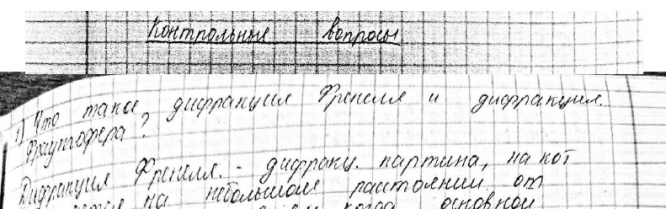 Контрольные вопросы
1) Что такое дифракция Френеля и дифракция
Фраунгофера?
Дифракция Френеля - дифракц. картина, на кот
на небольшом расстоянии от
когда основной